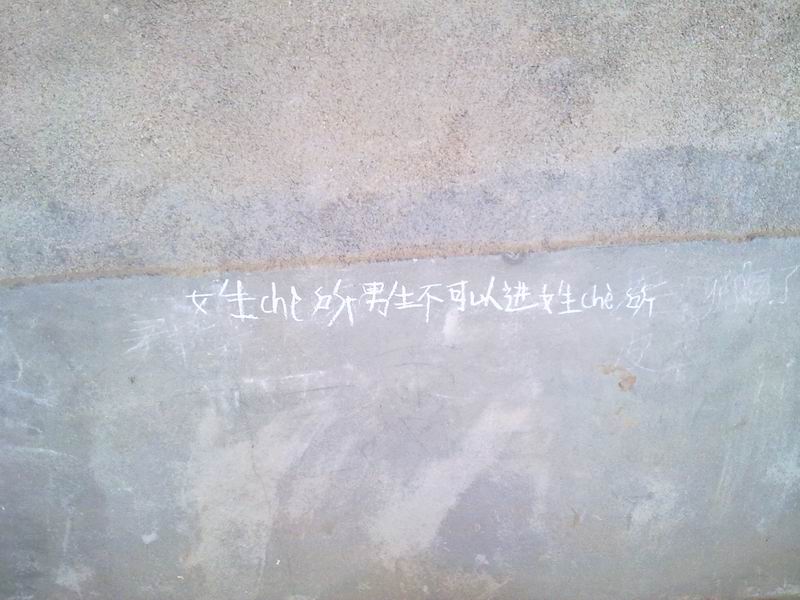 女生chè所男生不可以进女生chè所